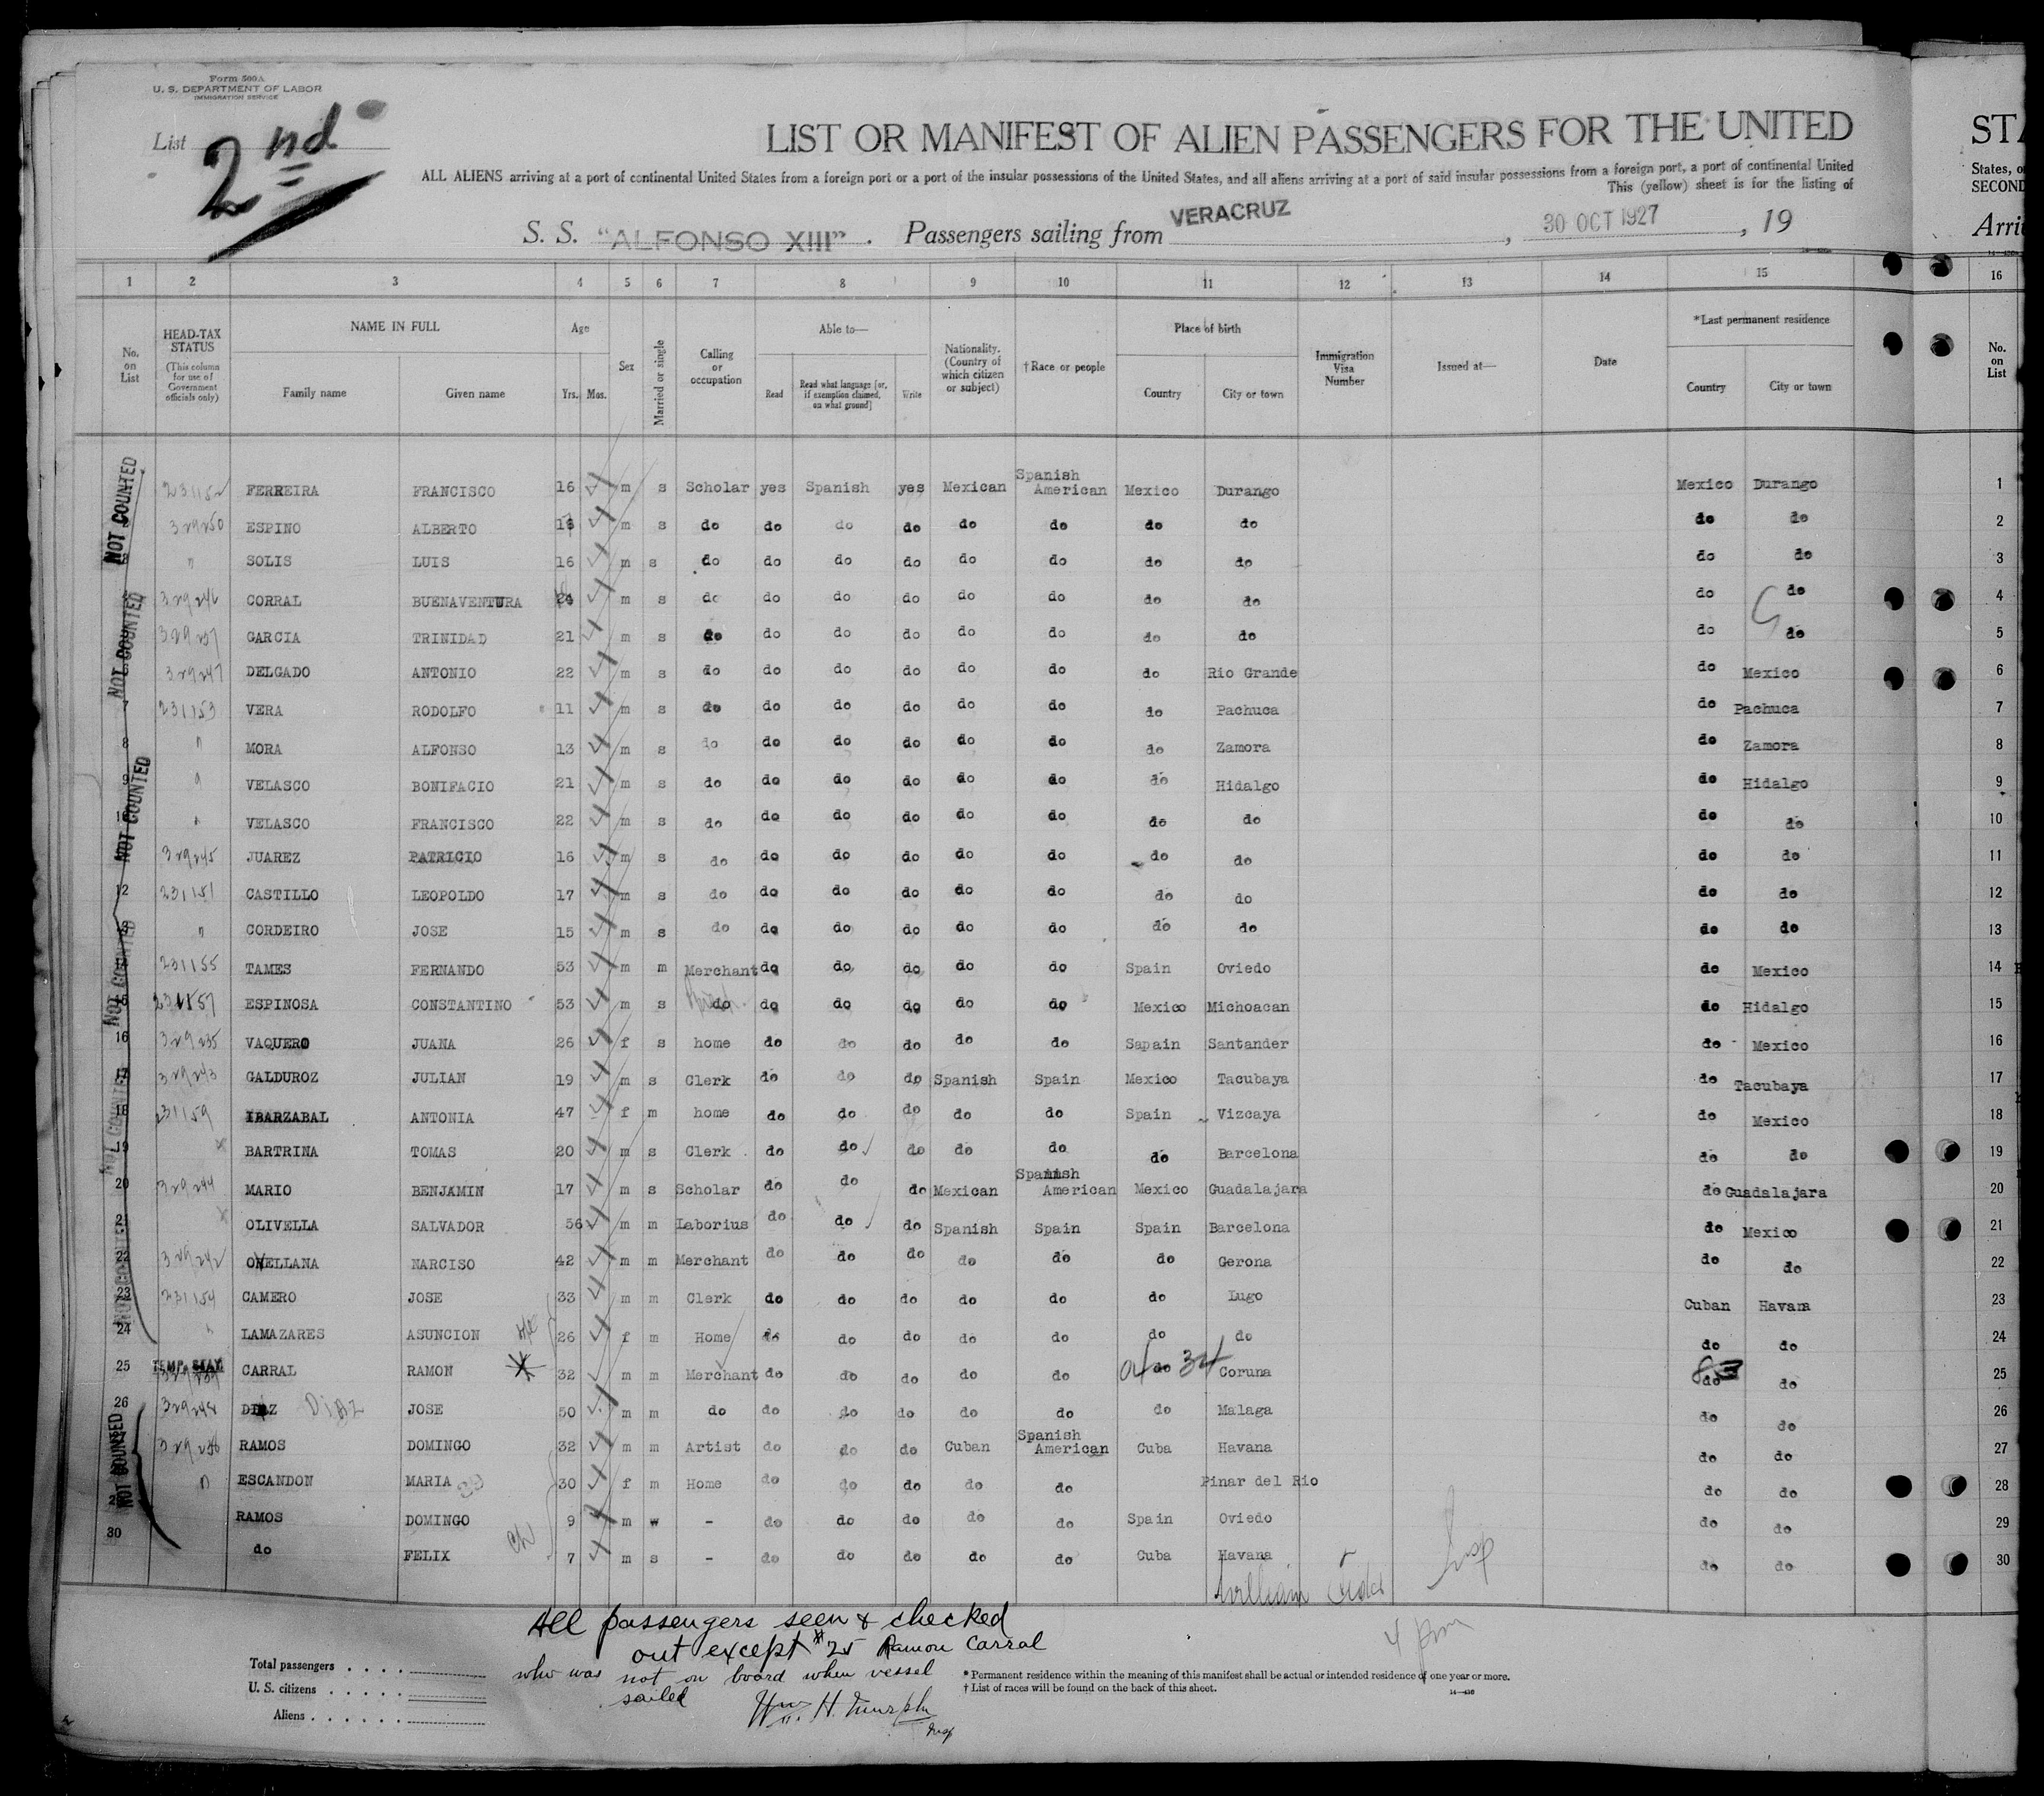 Form 500A
U. S. DEPARTMENT OF LABOR
IMMIGRATION SERVICE
List 2nd
LIST OR MANIFEST OF ALIEN PASSENGERS FOR THE UNITED
STA
ALL ALIENS arriving at a port of continental United States from a foreign port or a port of the insular possessions of the United States, and all aliens arriving at a port of said insular possessions from a foreign port, a port of continental United
States, o
This (yellow) sheet is for the listing of
SECOND
S. S. "ALFONSO XIII". Passengers sailing from VERACRUZ, 30 OCT 1927, 19
Arri
1 2 3 4 5 6 7 8 9 10 11 12 13 14 15 16
No. on List
HEAD-TAX STATUS (This column for use of Government officials only)
NAME IN FULL Family name Given name
Age Yrs. Mos.
Sex
Married or single
Calling or occupation
Able to— Read Read what language [or, if exemption claimed, on what ground] Write
Nationality. (Country of which citizen or subject)
†Race or people
Place of birth Country City or town
Immigration Visa Number
Issued at—
Date
*Last permanent residence Country City or town
No. on List
NOT COUNTED 231152 FERREIRA FRANCISCO 16 m s Scholar yes Spanish yes Mexican Spanish American Mexico Durango Mexico Durango 1
329250 ESPINO ALBERTO m s do do do do do do do do do do 2
" SOLIS LUIS 16 m s do do do do do do do do do do 3
NOT COUNTED 329246 CORRAL BUENAVENTURA m s do do do do do do do do do do 4
GARCIA TRINIDAD 21 m s do do do do do do do do do do 5
329247 DELGADO ANTONIO 22 m s do do do do do do do Rio Grande do Mexico 6
7 231153 VERA RODOLFO 11 m s do do do do do do do Pachuca do Pachuca 7
8 " MORA ALFONSO 13 m s do do do do do do do Zamora do Zamora 8
9 " VELASCO BONIFACIO 21 m s do do do do do do do Hidalgo do Hidalgo 9
NOT COUNTED 10 " VELASCO FRANCISCO 22 m s do do do do do do do do do do 10
329245 JUAREZ PATRICIO 16 m s do do do do do do do do do do 11
12 231151 CASTILLO LEOPOLDO 17 m s do do do do do do do do do do 12
13 " CORDEIRO JOSE 15 m s do do do do do do do do do do 13
NOT COUNTED 14 231155 TAMES FERNANDO 53 m m Merchant do do do do do Spain Oviedo do Mexico 14
15 ESPINOSA CONSTANTINO 53 m s do do do do do do Mexico Michoacan do Hidalgo 15
16 329235 VAQUERO JUANA 26 f s home do do do do do Sapain Santander do Mexico 16
17 329243 GALDUROZ JULIAN 19 m s Clerk do do do Spanish Spain Mexico Tacubaya do Tacubaya 17
NOT COUNTED 18 231159 IBARZABAL ANTONIA 47 f m home do do do do do Spain Vizcaya do Mexico 18
19 BARTRINA TOMAS 20 m s Clerk do do do do do do Barcelona do do 19
20 329244 MARIO BENJAMIN 17 m s Scholar do do do Mexican Spanish American Mexico Guadalajara do Guadalajara 20
21 OLIVELLA SALVADOR 56 m m Laborius do do do Spanish Spain Spain Barcelona do Mexico 21
NOT COUNTED 22 329242 ORELLANA NARCISO 42 m m Merchant do do do do do do Gerona do do 22
23 231154 CAMERO JOSE 33 m m Clerk do do do do do do Lugo Cuban Havana 23
24 " LAMAZARES ASUNCION 26 f m Home do do do do do do do do do 24
25 TEMP. STAY CARRAL RAMON 32 m m Merchant do do do do do do 34 Coruna do do 25
26 329248 DIAZ Diaz JOSE 50 m m do do do do do do do Malaga do do 26
NOT COUNTED RAMOS DOMINGO 32 m m Artist do do do Cuban Spanish American Cuba Havana do do 27
" ESCANDON MARIA 30 f m Home do do do do do Pinar del Rio do do 28
RAMOS DOMINGO 9 m w - do do do do do Spain Oviedo do do 29
30 do FELIX 7 m s - do do do do do Cuba Havana do do 30
Insp
4 pm
All passengers seen & checked
out except #25 Ramon Carral
who was not on board when vessel
sailed
Wm. H. Murphy
Insp
Total passengers
U. S. citizens
Aliens
* Permanent residence within the meaning of this manifest shall be actual or intended residence of one year or more.
† List of races will be found on the back of this sheet.